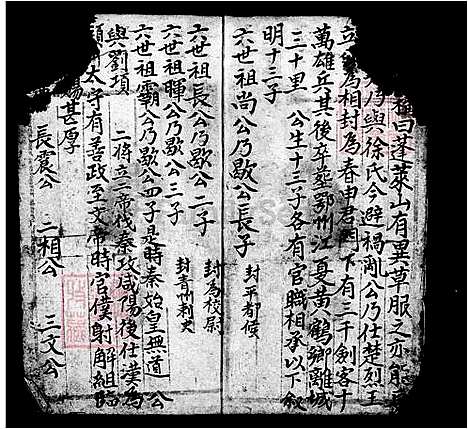 種曰蓬萊山有異草服之亦能
乃與徐氏今避禍亂公乃仕楚烈王
立 為相封為春申君門下有三千劍客十
萬雄兵其後卒葬鄂州江夏黃八鶴鄉離城
三十里 公生十三子各有官職相承以下叙
明十三子
六世祖尚公乃歇公長子 封平都候
六世祖長公乃歇公二子 封為校尉
六世祖暉公乃歇公三子 封青州刺史
六世祖霸公乃歇公四子是時秦始皇無道 公
與劉項 二將立三帝伐秦攻咸陽後仕漢為
太守有善政至文帝時官僕射解組臨
賜甚厚
長震公 二相公 三文公